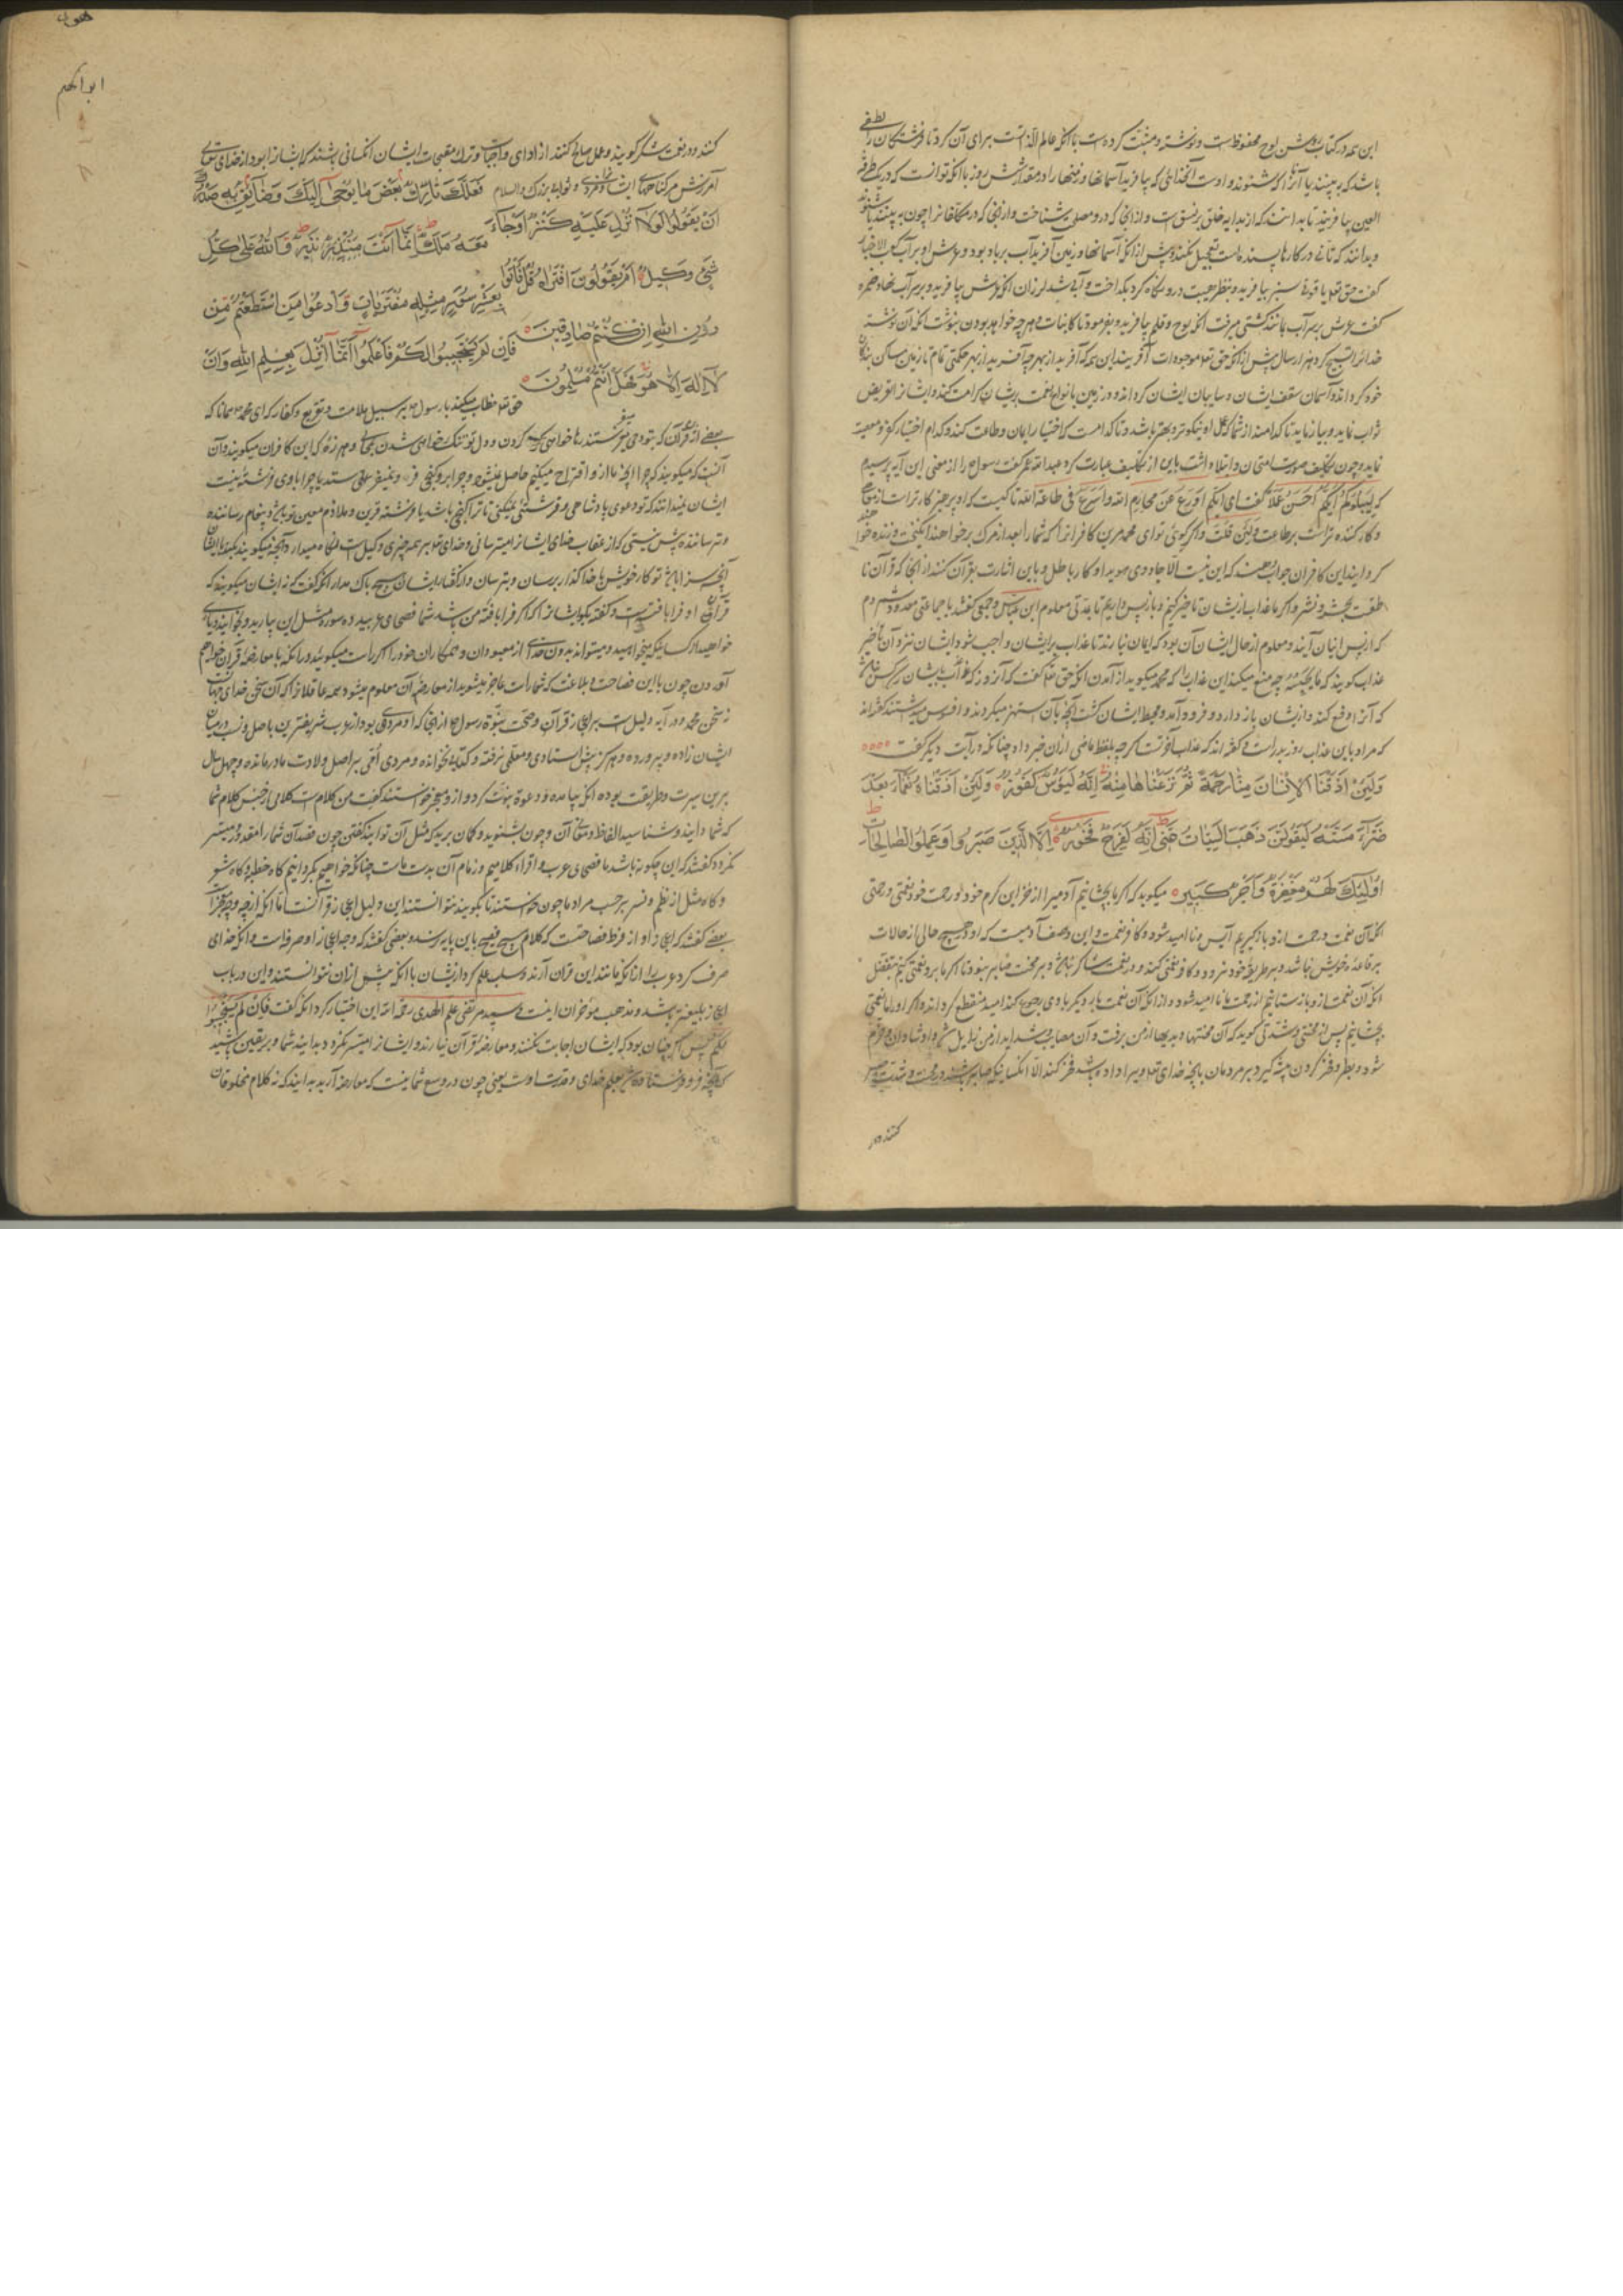 این همه در کتاب روشن لوح محفوظ است و نوشته و مثبت کرده است باآنکه عالم الذات است برای آن کرد تا فرشتگان را لطفی
باشد که به بینند یا آنرا که شنوند و اوست آنخدائی که بیافرید آسمانها و زمینها را در مقدار شش روز باآنکه توانست که در یک طرفة
العین بیافریند تا بدانند که
و بدانند که تأنی در کارها پسندیده است و تعجیل نکند و پیش از آنکه آسمانها و زمین آفرید آب بر باد بود و عرش او بر آب کعب الاخبار
گفت حق تعالی یاقوتی سبز بیافرید و بنظر هیبت درو نگاه کرد بگداخت و آبی شد لرزان آنگه عرش بیافرید و بر سر آب نهاد ضمره
گفت عرش بر سر آب مانند کشتی میرفت آنگه لوح و قلم بیافرید و بفرمود تا کاینات و هرچه خواهد بودن بنوشت آنگه آن نوشته
خدایرا تسبیح کرد هزار سال پیش از آنکه حق تعالی موجودات آفریند این همه که آفرید از بهر چه آفرید از بهر حکمتی تمام تا زمین مساکن بندگان
خود گرداند و آسمان سقف ایشان و سایبان ایشان گرداند و در زمین بانواع نعمت بر ایشان کرامت کند و ایشانرا تعریض
ثواب نماید و بیازماید تا کدامند از شما که عمل او نیکوتر و بهتر باشد و تا کدامست که اختیار ایمان و طاعت کند و کدام اختیار کفر و معصیت
نماید و چون تکلیف صورت امتحان و ابتلا داشت باین از تکلیف عبارت کرد عبدالله عمر گفت رسول را از معنی این آیه پرسیدم
که لیبلوکم ایکم احسن عملا گفت ای ایکم اورع عن محارم الله و اسرع فی طاعة الله تا کیست که او پرهیزکارتر است از معاصی
و کارکننده‌تر است بر طاعت ولئن قلت و اگر گوئی تو ای محمد مر این کافرانرا که شما را بعد از مرگ برخواهند انگیخت و زنده خواهند
گردانید این کافران جواب دهند که این نیست الا جادوی هویدا و کار باطل و باین اشارت بقرآن کنند از آنجا که قرآن نا
طقست بحشر و نشر و اگر ما عذاب از ایشان تاخیر کنیم و باز پس داریم تا مدتی معلوم ابن عباس و جمعی گفتند یا جماعتی معدود و مردم
که از پس اینان آیند و معلوم از حال ایشان آن بود که ایمان نیارند تا عذاب بر ایشان واجب شود ایشان نزد آن تأخیر
عذاب گویند که ما یحبسه چه منع میکند این عذاب را که محمد میگوید از آمدن آنگه حق تعالی گفت که آنروز که عذاب بایشان
که آنرا دفع کند و از ایشان باز دارد و فرود آمد و محیط ایشان گشت آنچه بآن استهزا میکردند و افسوس میداشتند
که مراد باین عذاب روز بدر است و گفته‌اند که عذاب آخرت است گرچه بلفظ ماضی از آن خبر داد چنانکه در آیت دیگر گفت
ولئن اذقنا الانسان منا رحمة ثم نزعناها منه انه لیؤس کفور ولئن اذقناه نعماء بعد
ضراء مسته لیقولن ذهب السیئات عنی انه لفرح فخور الا الذین صبروا و عملوا الصالحات
اولئک لهم مغفرة و اجر کبیر میگوید که اگر ما بچشانیم آدمی را از خزاین کرم خود و رحمت خود نعمتی و رحمتی
آنگه آن نعمت و رحمت ازو بازگیریم آیس و ناامید شود و کافر نعمت و این وصف آدمیست که او در هیچ حالی از حالات
بر قاعده خویش نباشد و بر طریقه خود نرود و کافر نعمتی کند و در نعمت شاکر نباشد و بر محنت صابر نبود تا اگر ما برو نعمتی کنیم بتفضل
آنگه آن نعمت ازو بازستانیم از رحمت ما ناامید شود و از آنکه آن نعمت بار دیگر با وی رجوع کند امید منقطع گرداند و اگر او را ما نعمتی
بچشانیم پس از محنتی و شدتی گوید که آن محنتها و بدیها از من برفت و آن مصایب و شداید از من زایل شد و او شادان و خرم
شود و بطر و فخر کردن پیشه گیرد بر مردمان بآنچه خدای تعالی ویرا داده باشد و فخر کند الا آنکسانیکه صابر باشند در محنت و شدت و صبر
کنند و در
هود
ابراهیم
کنند و در نعمت شکر گویند و عمل صالح کنند از ادای واجبات و ترک مقبحات ایشان آنکسانی باشند که ایشانرا بود از خدای تعالی
آمرزش مر گناهان ایشانرا و مزدی و ثوابی بزرگ والسلام فلعلک تارک بعض ما یوحی الیک و ضائق به صدرک
ان یقولوا لولا انزل علیه کنز او جاء معه ملک انما انت نذیر والله علی کل
شیء وکیل ام یقولون افتراه قل فأتوا بعشر سور مثله مفتریات و ادعوا من استطعتم من
دون الله ان کنتم صادقین فان لم یستجیبوا لکم فاعلموا انما انزل بعلم الله و ان
لا اله الا هو فهل انتم مسلمون حق تعالی خطاب میکند با رسول بر سبیل ملامت و تقریع و کفار که ای محمد همانا که
بعضی از قرآن که بتو وحی میفرستند رها خواهی کردن و دل تو تنگ خواهی شدن بحالی و هر زه که این کافران میگویند و آن
آنست که میگویند که چرا آنچه ما ازو اقتراح میکنیم حاصل نمیشود و چرا برو گنجی فرو نمیفرستد یا چرا با وی فرشته نیست
ایشان میدانند که تو دعوی پادشاهی و فرشتگی نمیکنی تا ترا گنجی باشد یا فرشته قرین و ملازم معین تو باشد و پیغام رساننده
و ترساننده بیش نیستی که از عقاب خدای ایشانرا میترسانی و خدای تعالی بر همه چیزی وکیل است و نگاه میدارد آنچه میگویند
آنچه سزا باشد تو کار خویش با خدا گذار برسان و بترسان و از گفتار ایشان هیچ باک مدار آنگه گفت که نه ایشان میگویند که
قرآن او فرابافته است و گفته بگو ایشانرا که اگر فرابافته من باشد شما فصحای عربید ده سوره مثل این بیارید و بخوانید و یاری
خواهید از کسانیکه میخواهید و میتوانید بدون خدای از معبودان و همکاران خود را اگر راست میگوئید در آنکه ما معارضه قرآن خواهیم
آوردن چون با این فصاحت و بلاغت که شما راست عاجز میشوید از معارضه آن معلوم میشود همه عاقلانرا که آن سخن خدای جهانست
نه سخن محمد و در آیه دلیل است بر اعجاز قرآن و صحت نبوة رسول از آنجا که او مردی بود از عرب شریفترین باصل و نسب در میان
ایشان زاده و پرورده و هرگز پیش استادی و معلمی نرفته و کتابی نخوانده و مردی امی بر اصل ولادت مادر مانده و چهل سال
برین سیرت و طریقت بوده آنگه بیامده و دعوة نبوت کرد و ازو معجز خواستند گفت من کلام است کلامی از جنس کلام شما
که شما دانید و شناسید الفاظ و معانی آن و چون بشنوید و گمان برید که مثل آن توانید گفتن چون قصد آن شما را مقدور و میسر
نگردد گفتند که این چگونه باشد ما فصحای عرب و امراء کلامیم و زمام آن بدست ماست چنانکه خواهیم بگردانیم گاه خطبه و گاه شعر
و گاه مثل از نظم و نثر بر حسب مراد ما چون خواستند تا بگویند نتوانستند این دلیل اعجاز قرآنست اما آنکه از چه وجه معجز است
بعضی گفتند که اعجاز او از فرط فصاحتست که کلام هیچ فصیح باین پایه نرسد و بعضی گفتند که وجه اعجاز او صرفه است و آنکه خدای
صرف کرد عرب را از آنکه مانند این قرآن آرند و سلب علم کرد از ایشان باآنکه پیش از آن میتوانستند و این در باب
اعجاز بلیغتر باشد و مذهب مؤخران اینست و سید مرتضی علم الهدی رحمه الله این اختیار کرد آنگه گفت فان لم یستجیبوا
لکم پس اگر چنان بود که ایشان اجابت نکنند و معارضه قرآن نیارند و ایشانرا میسر نگردد بدانید شما و بر یقین باشید
که آنچه فرو فرستاده بعلم خدای و قدرت اوست یعنی چون در وسع شما نیست که معارضه آرید بدانید که نه کلام مخلوقان